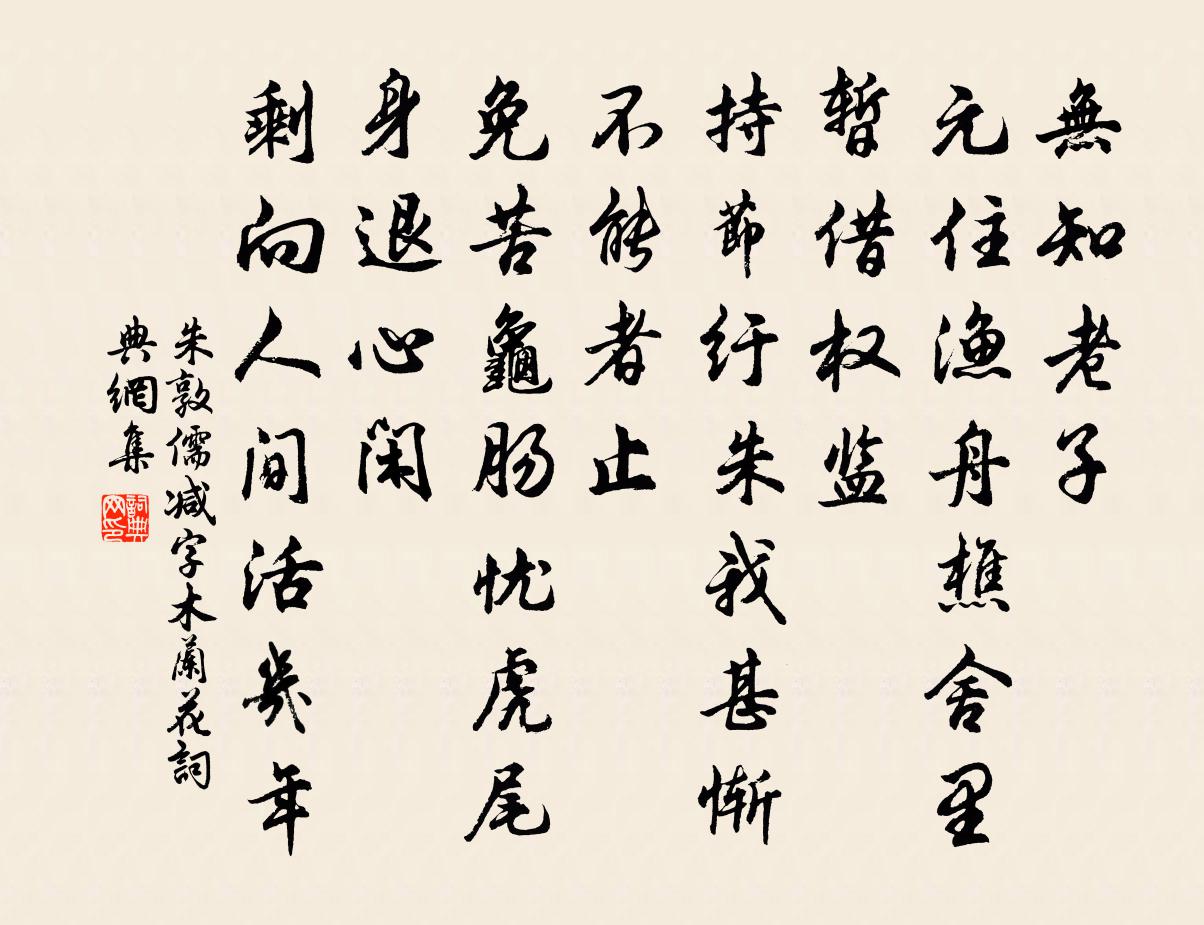 無知老子
元住渔舟樵舍里
暂借权监
持節纡朱我甚惭
不能者止
免苦龜肠忧虎尾
身退心闲
剩向人间活幾年
朱敦儒减字木蘭花詞
典網集
詞典网印